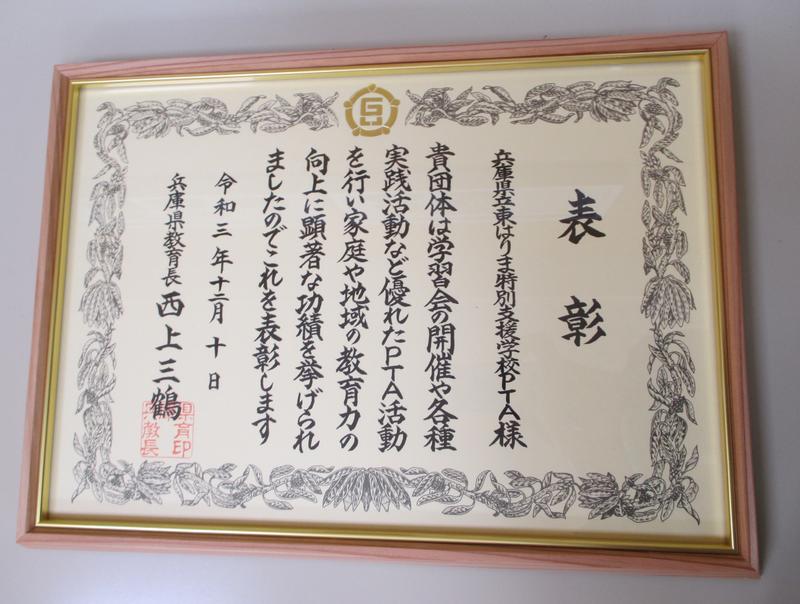 表彰
兵庫県立東はりま特別支援学校PTA様
貴団体は学習会の開催や各種
実践活動など優れたPTA活動
を行い家庭や地域の教育力の
向上に顕著な功績を挙げられ
ましたのでこれを表彰します
令和三年十二月十日
兵庫県教育長 西上三鶴